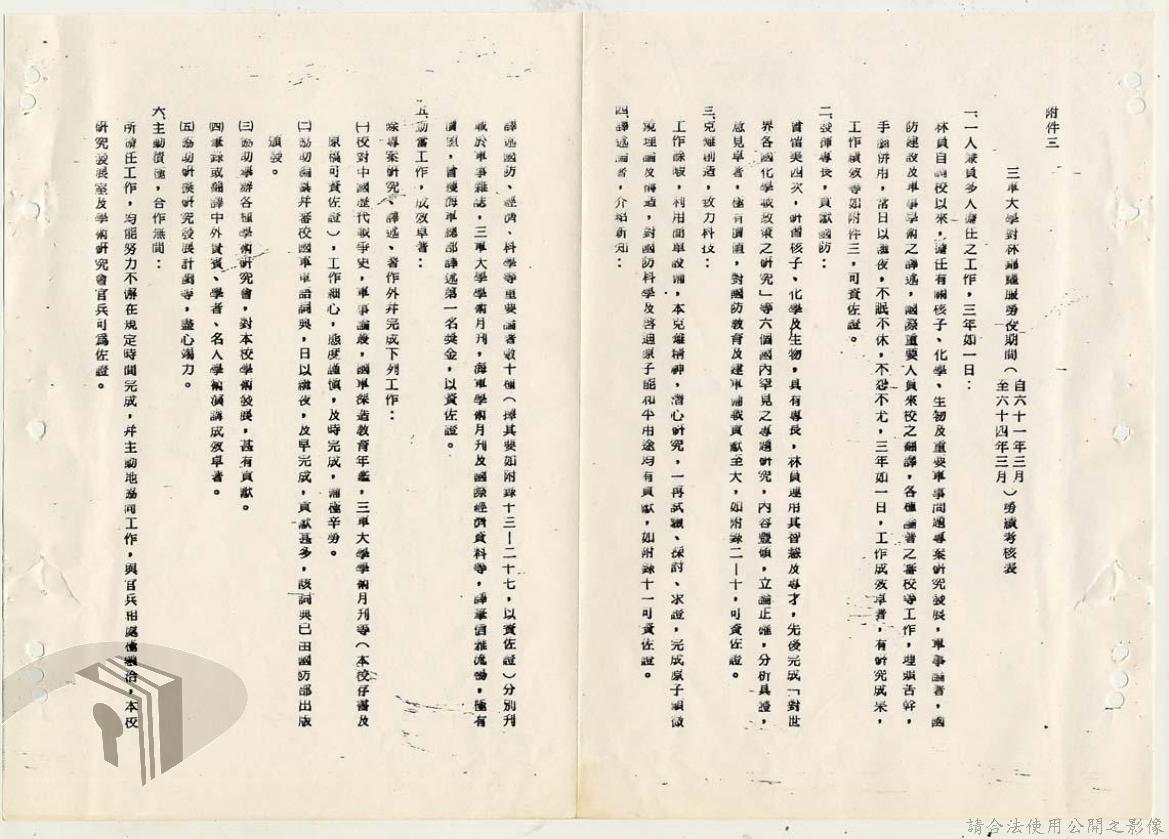 附件三
三軍大學對林 服勞役期間（自六十一年三月至六十四年三月）勞績考核表
一、一人兼負多人擔任之工作，三年如一日：
林員自調校以來，擔任有關核子、化學、生物及重要軍事問題專案研究發展，軍事論著，國
防建設及軍事學術之譯述，國際重要人員來校之翻譯，各種論著之審校等工作，埋頭苦幹，
手腦併用，常日以繼夜，不眠不休，不怨不尤，三年如一日，工作成效卓著，有研究成果，
工作績效等如附件三，可資佐證。
二、發揮專長，貢獻國防：
曾留美四次，研習核子、化學及生物，具有專長，林員運用其智慧及專才，先後完成「對世
界各國化學戰政策之研究」等六個國內罕見之專題研究，內容豐碩，立論正確，分析具證，
意見卓著，極有價值，對國防教育及建軍備戰貢獻至大，如附錄二－十，可資佐證。
三、克難創造，致力科技：
工作餘暇，利用簡單設備，本克難精神，潛心研究，一再試驗、探討、求證，完成原子 
 理論及 造，對國防科學及啓迪原子能和平用途均有貢獻，如附錄十一可資佐證。
四、譯述論著，介紹新知：
譯述國防、經濟、科學等重要論著數十種（擇其要如附錄十三－二十七，以資佐證）分別刊
載於軍事雜誌，三軍大學學術月刊，海軍學術月刊及國際經濟資料等，譯筆信雅流暢，極有
價值，曾獲海軍總部譯述第一名獎金，以資佐證。
五、勤奮工作，成效卓著：
除專案研究、譯述、著作外并完成下列工作：
㈠校對中國歷代戰爭史，軍事論叢，國軍深造教育年鑑，三軍大學學術月刊等（本校存書及
原稿可資佐證），工作細心，態度謹慎，及時完成，備極辛勞。
㈡協助編纂并審校國軍軍語詞典，日以繼夜，及早完成，貢獻甚多，該詞典已由國防部出版
頒發。
㈢協助舉辦各種學術研究會，對本校學術發展，甚有貢獻。
㈣筆錄或翻譯中外貴賓、學者、名人學術演講成效卓著。
㈤協助研擬研究發展計劃等，盡心竭力。
六、主動積極，合作無間：
所擔任工作，均能努力不懈在規定時間完成，并主動地協同工作，與官兵相處極融洽，本校
研究發展室及學術研究會官兵可爲佐證。
請合法使用公開之影像